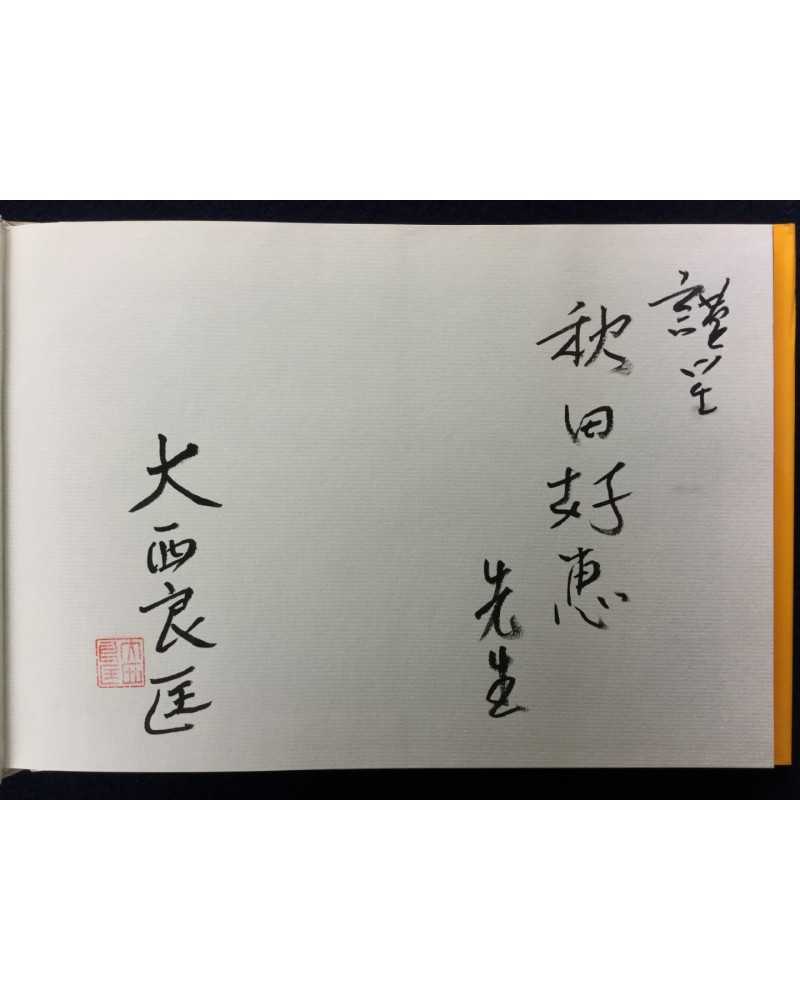 謹呈
秋田好恵
先生
大西良匡
大西良匡